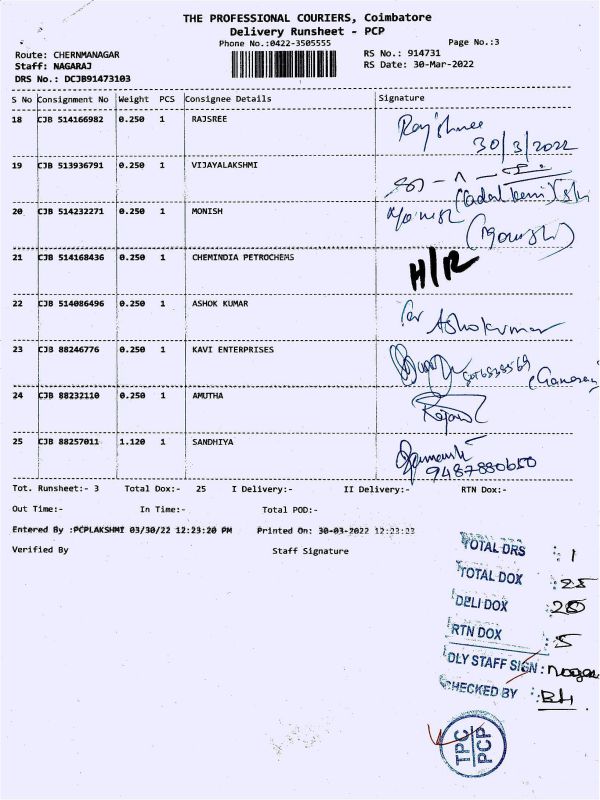 THE PROFESSIONAL COURIERS, Coimbatore
Delivery Runsheet - PCP
Phone No.:0422-3505555
Page No.:3
Route: CHERNMANAGAR
RS No.: 914731
Staff: NAGARAJ
RS Date: 30-Mar-2022
DRS No.: DCJB91473103
S No Consignment No Weight PCS Consignee Details Signature
18 CJB 514166982 0.250 1 RAJSREE
30/3/2022
19 CJB 513936791 0.250 1 VIJAYALAKSHMI
20 CJB 514232271 0.250 1 MONISH
21 CJB 514168436 0.250 1 CHEMINDIA PETROCHEMS H/R
22 CJB 514086496 0.250 1 ASHOK KUMAR Ashokumar
23 CJB 88246776 0.250 1 KAVI ENTERPRISES
24 CJB 88232110 0.250 1 AMUTHA
25 CJB 88257011 1.120 1 SANDHIYA
9487880650
Tot. Runsheet:- 3 Total Dox:- 25 I Delivery:- II Delivery:- RTN Dox:-
Out Time:- In Time:- Total POD:-
Entered By :PCPLAKSHMI 03/30/22 12:23:20 PM Printed On: 30-03-2022 12:23:23
Verified By Staff Signature
TOTAL DRS : 1
TOTAL DOX : 25
DELI DOX : 20
RTN DOX : 5
DLY STAFF SIGN :
CHECKED BY :
TPC
PCP